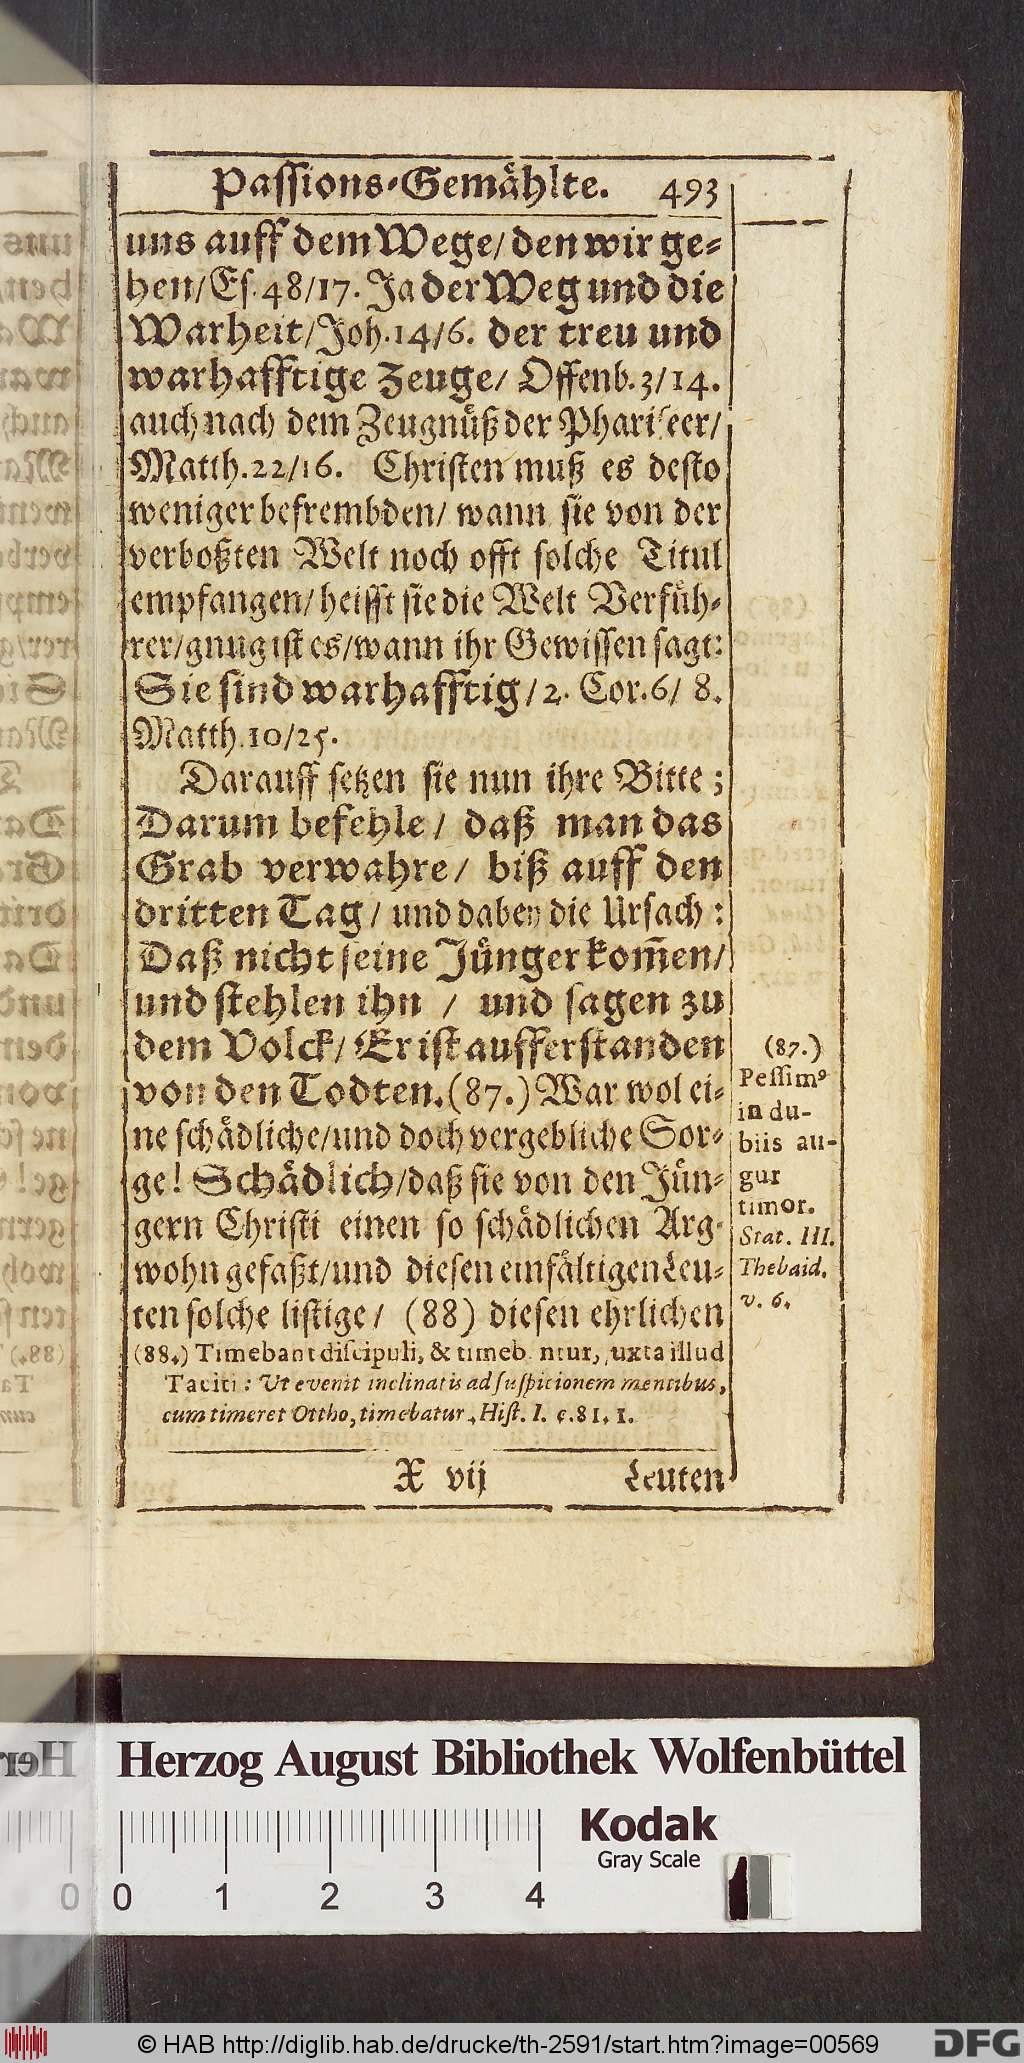 Passions-Gemåhlte. 493
uns auff dem Wege/ den wir ge-
hen/ Es. 48/17. Ja der Weg und die
Warheit/ Joh. 14/6. der treu und
warhafftige Zeuge/ Offenb. 3/14.
auch nach dem Zeugnůß der Phariseer/
Matth. 22/16. Christen muß es desto
weniger befrembden/ wann sie von der
verboßten Welt noch offt solche Titul
empfangen/ heisst sie die Welt Verfůh-
rer/ gnug ist es/ wann ihr Gewissen sagt:
Sie sind warhafftig/ 2. Cor. 6/ 8.
Matth. 10/25.
Darauff setzen sie nun ihre Bitte;
Darum befehle/ daß man das
Grab verwahre/ biß auff den
dritten Tag/ und dabey die Ursach:
Daß nicht seine Jůnger kom̃en/
und stehlen ihn / und sagen zu
dem Volck/ Er ist aufferstanden
von den Todten. (87.) War wol ei-
ne schådliche/ und doch vergebliche Sor-
ge! Schådlich/ daß sie von den Jůn-
gern Christi einen so schådlichen Arg-
wohn gefaßt/ und diesen einfåltigen Leu-
ten solche listige/ (88) diesen ehrlichen
(87.)
Pessimꝰ
in du-
biis au-
gur
timor.
Stat. III.
Thebaid.
v. 6.
(88.) Timebant discipuli, & timebantur, juxta illud
Taciti: Ut evenit inclinatis ad suspicionem mentibus,
cum timeret Ottho, timebatur, Hist. I. c. 81. 1.
X vij Leuten
Herzog August Bibliothek Wolfenbüttel
Kodak
Gray Scale
0 0 1 2 3 4
© HAB http://diglib.hab.de/drucke/th-2591/start.htm?image=00569
DFG